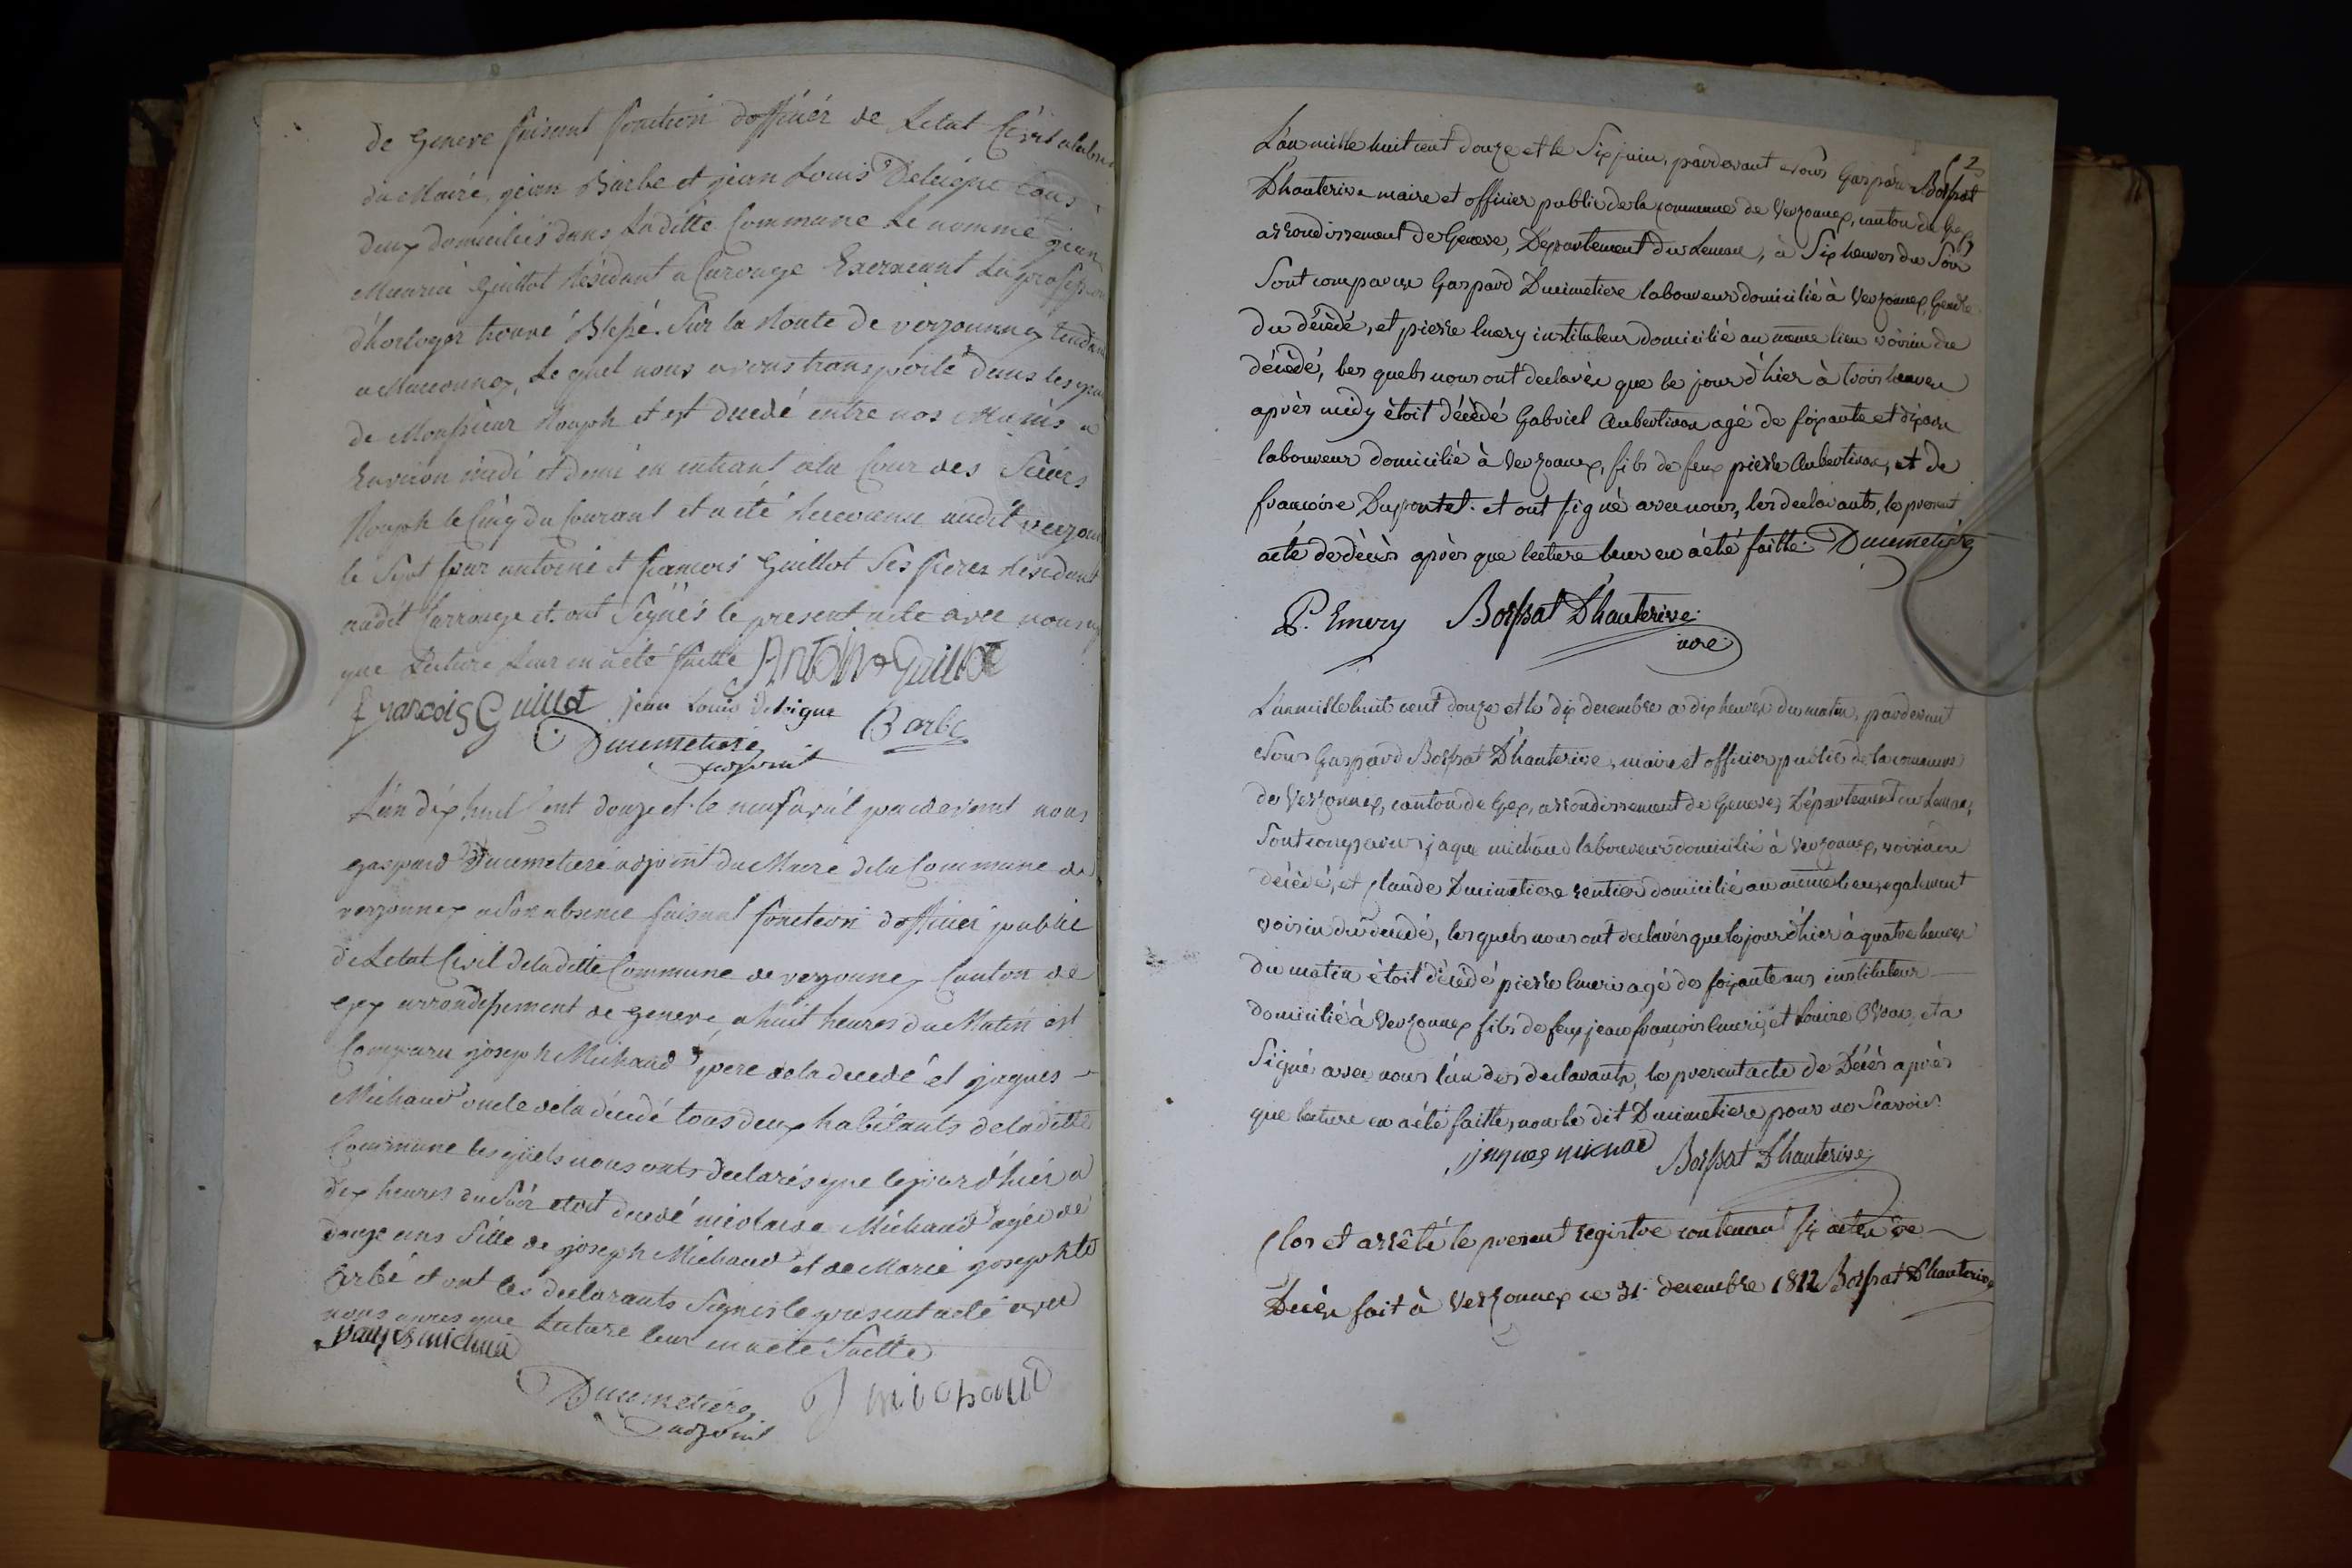 de Geneve faisant fonction d'officier de Letat Civil
du Maire, jean Barbe et jean Louis Deleigne tous
deux domiciliés dans Laditte Commune Le nommé jean
Guillot Résidant a Carouge Exerceant La
d'horloger trouvé Blessé sur la Route de verzonnex
a Maconnex, Le quel nous avons transporté dans
de Monsieur et est decedé entre nos Mains a
Environ midi et demi en entrant a la Cour des Sieurs
le Cinq du Courant et a été audit
le Sept par antoine et francois Guillot Ses freres Residant
audit Carrouge et ont Signés le present acte avec nous
que Lecture Leur en a été faitte Antoine Guillot
François Guillot jean Louis Barbe
Ducimetiere
adjoint
L'an dix huit Cent douze et le neuf avril pardevant nous
gaspard Ducimetiere adjoint du Maire dela Commune de
verzonnex a Son absence faisant fonction d'officier public
de Letat Civil deladitte Commune de verzonnex Canton de
gex arrondissement de Geneve a huit heures du Matin est
Comparu joseph Michaud pere dela decedé et jaques
Michaud oncle dela décédé tous deux habitants deladitte
Commune lesquels nous onts declarés que le jour d'hier a
dix heures du Soir etoit decedé Michaud agée de
douze ans fille de joseph Michaud et de Marie josephte
et ont les declarants Signés le present acte avec
nous apres que Lecture leur en a été faitte
Ducimetiere J michaud
adjoint
2
L'an mille huit cent douze et le Six juin, pardevant Nous Gaspard Bossat
D'hauterive maire et officier public de la commune de Verzonnex, canton de Gex
arrondissement de Geneve, Département du Leman, à Six heures du Soir
Sont comparus Gaspard Ducimetiere laboureur domicilié à Verzonnex, Gendre
du décédé, et pierre Emery instituteur domicilié au meme lieu voisin du
décédé, les quels nous ont declarés que le jour d'hier à trois heures
après midy étoit décédé Gabriel Aubertison agé de soixante et dix ans
laboureur domicilié à Verzonnex, fils de feux pierre Aubertison, et de
francoise Dupontet. et ont signé avec nous, les declarants, le present
acte de décès après que lecture leur en a été faitte. Ducimetière
P. Emery Bossat D'hauterive
L'an mille huit cent douze et le dix decembre a dix heures du matin, pardevant
Nous Gaspard Bossat D'hauterive, maire et officier public de la commune
de Verzonnex, canton de Gex, arrondissement de Geneve, Département du Leman,
Sont comparus jaque michaud laboureur domicilié à Verzonnex, voisin du
décédé, et Claude Ducimetiere rentier domicilié au même lieu, egalement
voisin du décédé, les quels nous ont declarés que le jour d'hier à quatre heures
du matin étoit décédé pierre Emeri agé de soixante ans instituteur
domicilié à Verzonnex fils de feux jean françois Emeri, et Louise et a
Signé avec nous l'un des declarants, le present acte de Décès après
que lecture en a été faitte, non le dit Ducimetiere pour ne Scavoir.
Bossat D'hauterive
Clos et arrêté le present registre contenant six actes de
Décès fait à Verzonnex ce 31 decembre 1812 Bossat D'hauterive